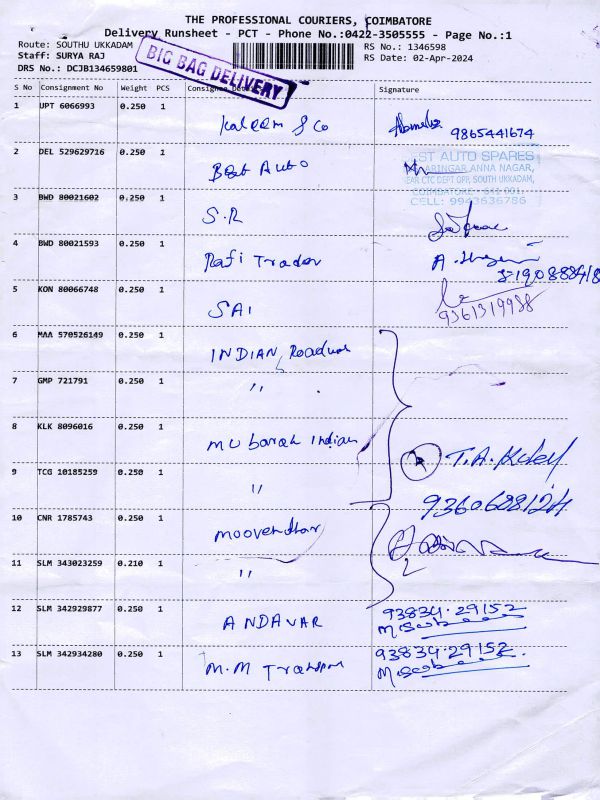 THE PROFESSIONAL COURIERS, COIMBATORE
Delivery Runsheet - PCT - Phone No.:0422-3505555 - Page No.:1
Route: SOUTHU UKKADAM
Staff: SURYA RAJ
DRS No.: DCJB134659801
BIG BAG DELIVERY
RS No.: 1346598
RS Date: 02-Apr-2024
S No Consignment No Weight PCS Consignee Signature
1 UPT 6066993 0.250 1 Kaleem & Co 9865441674
2 DEL 529629716 0.250 1 Best Auto
ST AUTO SPARES
ARINGAR ANNA NAGAR,
CTC DEPT OPP, SOUTH UKKADAM,
COIMBATORE - 641 001.
CELL: 9943636786
3 BWD 80021602 0.250 1 S.R
4 BWD 80021593 0.250 1 Rafi Trader A.
5 KON 80066748 0.250 1 SAI 9361319988
6 MAA 570526149 0.250 1 INDIAN Roadways
7 GMP 721791 0.250 1 "
8 KLK 8096016 0.250 1 Mubarak Indian
T.A.
9 TCG 10185259 0.250 1 "
9360608124
10 CNR 1785743 0.250 1 Moovendhar
11 SLM 343023259 0.210 1 "
12 SLM 342929877 0.250 1 ANDAVAR 93834.29152
13 SLM 342934280 0.250 1 M.M Transport 93834.29152.